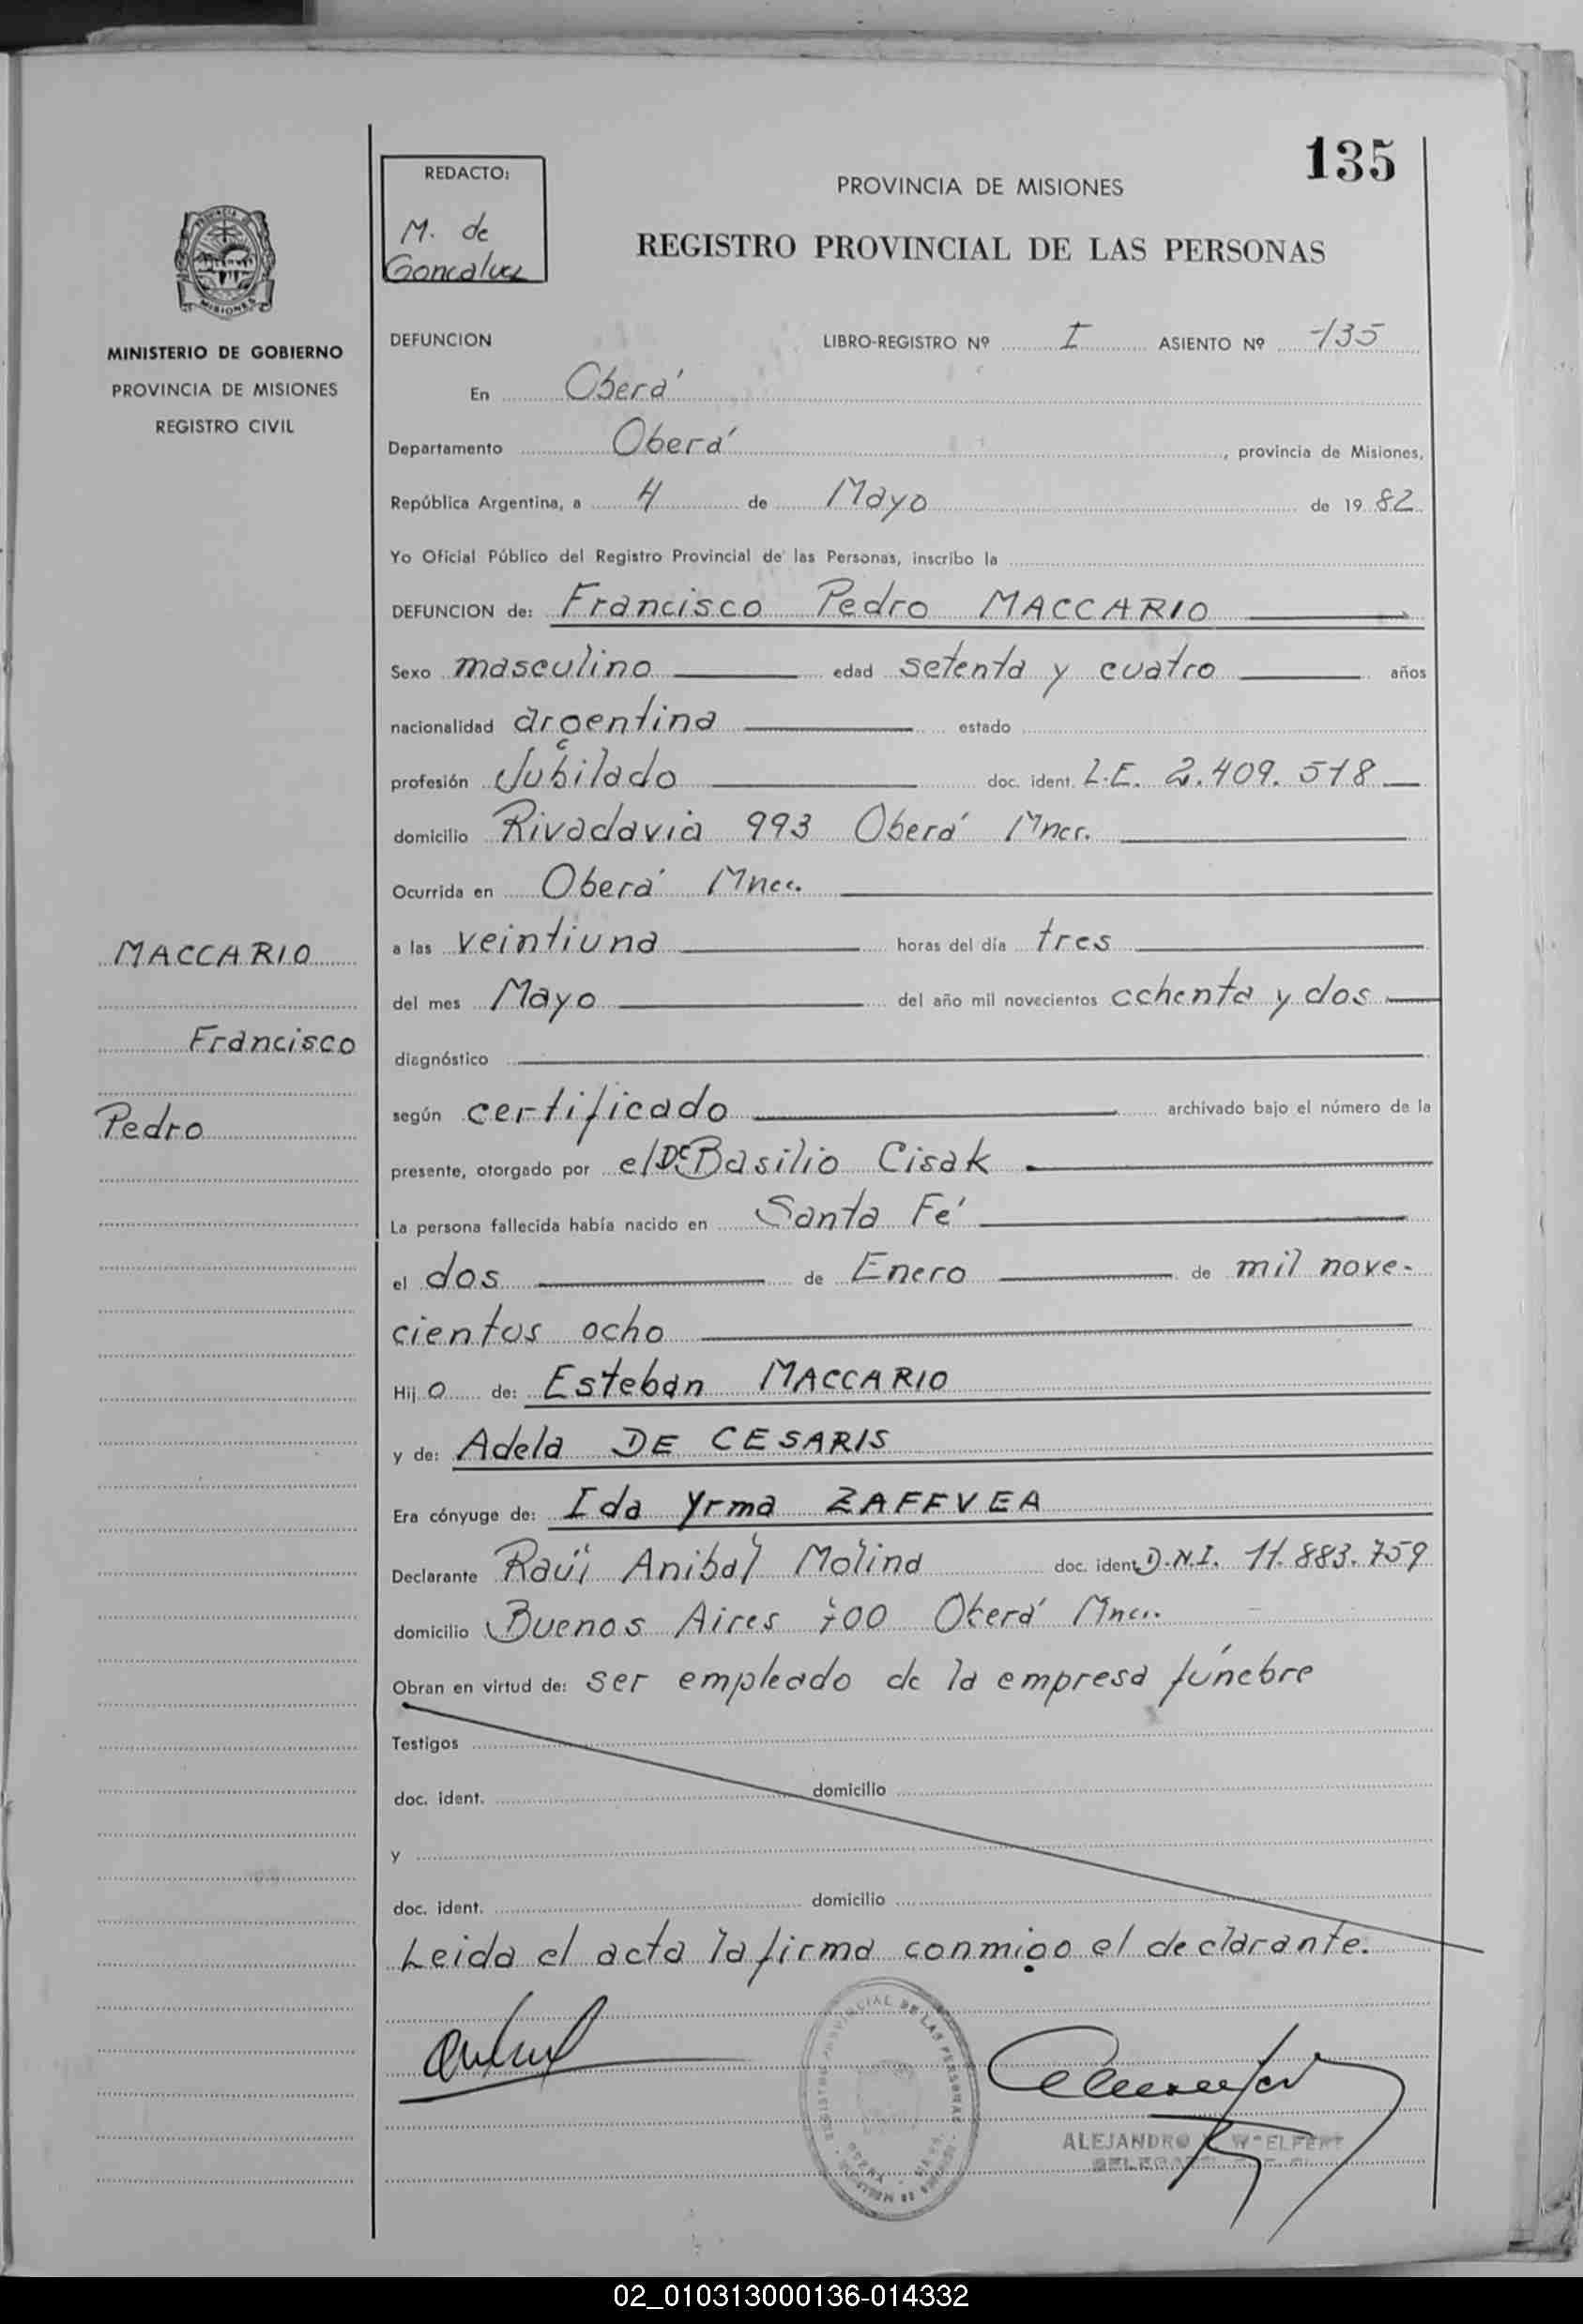 135
REDACTO:
M. de
Goncalvez
PROVINCIA DE MISIONES
REGISTRO PROVINCIAL DE LAS PERSONAS
MISIONES
MINISTERIO DE GOBIERNO
PROVINCIA DE MISIONES
REGISTRO CIVIL
DEFUNCION LIBRO-REGISTRO Nº I ASIENTO Nº 135
En Oberá
Departamento Oberá, provincia de Misiones,
República Argentina, a 4 de Mayo de 1982
Yo Oficial Público del Registro Provincial de las Personas, inscribo la
DEFUNCION de: Francisco Pedro MACCARIO
Sexo masculino edad setenta y cuatro años
nacionalidad argentina estado
profesión Jubilado doc. ident. L.E. 2.409.518
domicilio Rivadavia 993 Oberá Mnes.
Ocurrida en Oberá Mnes.
MACCARIO
Francisco
Pedro
a las veintiuna horas del día tres
del mes Mayo del año mil novecientos ochenta y dos
diagnóstico
según certificado archivado bajo el número de la
presente, otorgado por el Dr Basilio Cisak
La persona fallecida había nacido en Santa Fé
el dos de Enero de mil nove-
cientos ocho
Hijo de: Esteban MACCARIO
y de: Adela DE CESARIS
Era cónyuge de: Ida Yrma ZAFFVEA
Declarante Raúl Anibal Molina doc. ident. D.N.I. 11.883.759
domicilio Buenos Aires 700 Oberá Mnes.
Obran en virtud de: ser empleado de la empresa fúnebre
Testigos
doc. ident. domicilio
y
doc. ident. domicilio
Leida el acta la firma conmigo el declarante.
ALEJANDRO
02_010313000136-014332